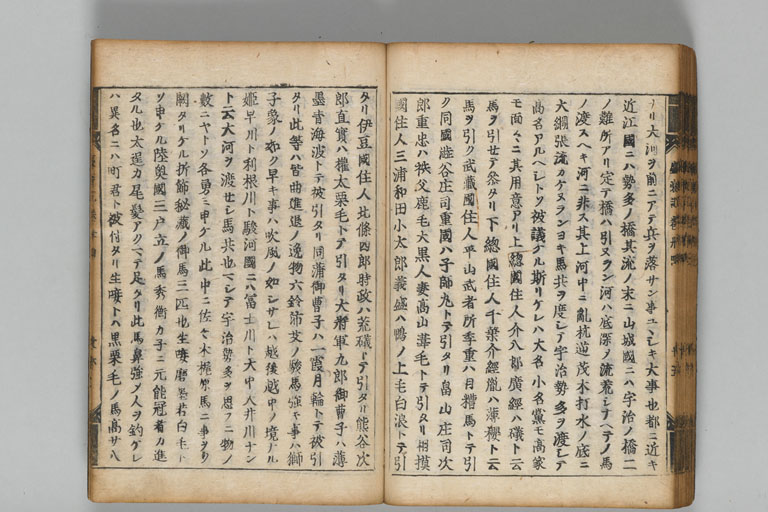 ノリ大河ヲ前ニアテ真ヲ落サン事ユヽシキ大事也都ニ近キ
近江國ニハ勢多ノ橋其流ノ末ニ山城國ニハ宇治ノ橋二
ノ難所アリ定テ橋ハ引ヌラン河ハ底深ソ流荒シナヘテノ馬
ノ渡スヘキ河ニ非ス其上河中ニ亂杭逆茂木打水ノ底ニ
大綱張流カケヌランヨキ馬共ヲ度シテ宇治勢多ヲ渡シテ
高名アルヘシトソ被議ケル斯リケレハ大名小名黨モ高家
モ面々ニ其用意アリ上総國住人介八郎廣經ハ礒ト云
馬ヲ引セテ参タリ下総國住人千葉介經胤ハ薄櫻ト云
馬ヲ引ク武藏國住人平山武者所季重ハ目糟馬トテ引
ク同國澁谷庄司重國ハ子師丸トテ引タリ畠山庄司次
郎重忠ハ秩父鹿毛大黒人妻高山葦毛トテ引タリ相摸
國住人三浦和田小太郎義盛ハ鴨ノ上毛白浪トテ引
タリ伊豆國住人北條四郎時政ハ荒礒トテ引タリ熊谷次
郎直實ハ權太栗毛トテ引タリ大将軍九郎御曹子ハ薄
墨青海波トテ被引タリ同蒲御曹子ハ一霞月輪トテ被引
タリ此等ハ皆曲進退ノ逸物六鈴沛艾ノ駿馬強キ事ハ獅
子象ノ如ク早キ事ハ吹風ノ如シサレハ越後越中ノ境ナル
姫早川ト利根川ト駿河國ニハ富士川ト大中大井川ナン
ト云大河ヲ渡セシ馬共也マシテ宇治勢多ヲ思フニ物ノ
數ニヤトソ各勇ミ申ケル此中ニ佐々木梶原馬ニ事ヲソ
闕タリケル折節秘藏ノ御馬三匹也生唼磨墨若白毛ト
ソ申ケル陸奥國三戸立ノ馬秀衡カ子ニ元能冠者カ進
タル也太逞カ尾髪アクマテ足タリ此馬鼻強シ人ヲ釣ケレ
ハ異名ニハ町君ト被付タリ生唼トハ黒栗毛ノ馬高サ八